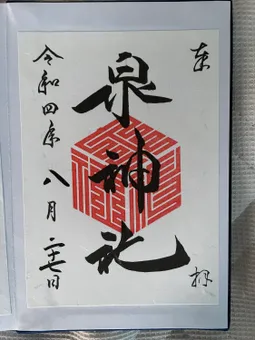 奉拝
泉神社
令和四年八月二十七日